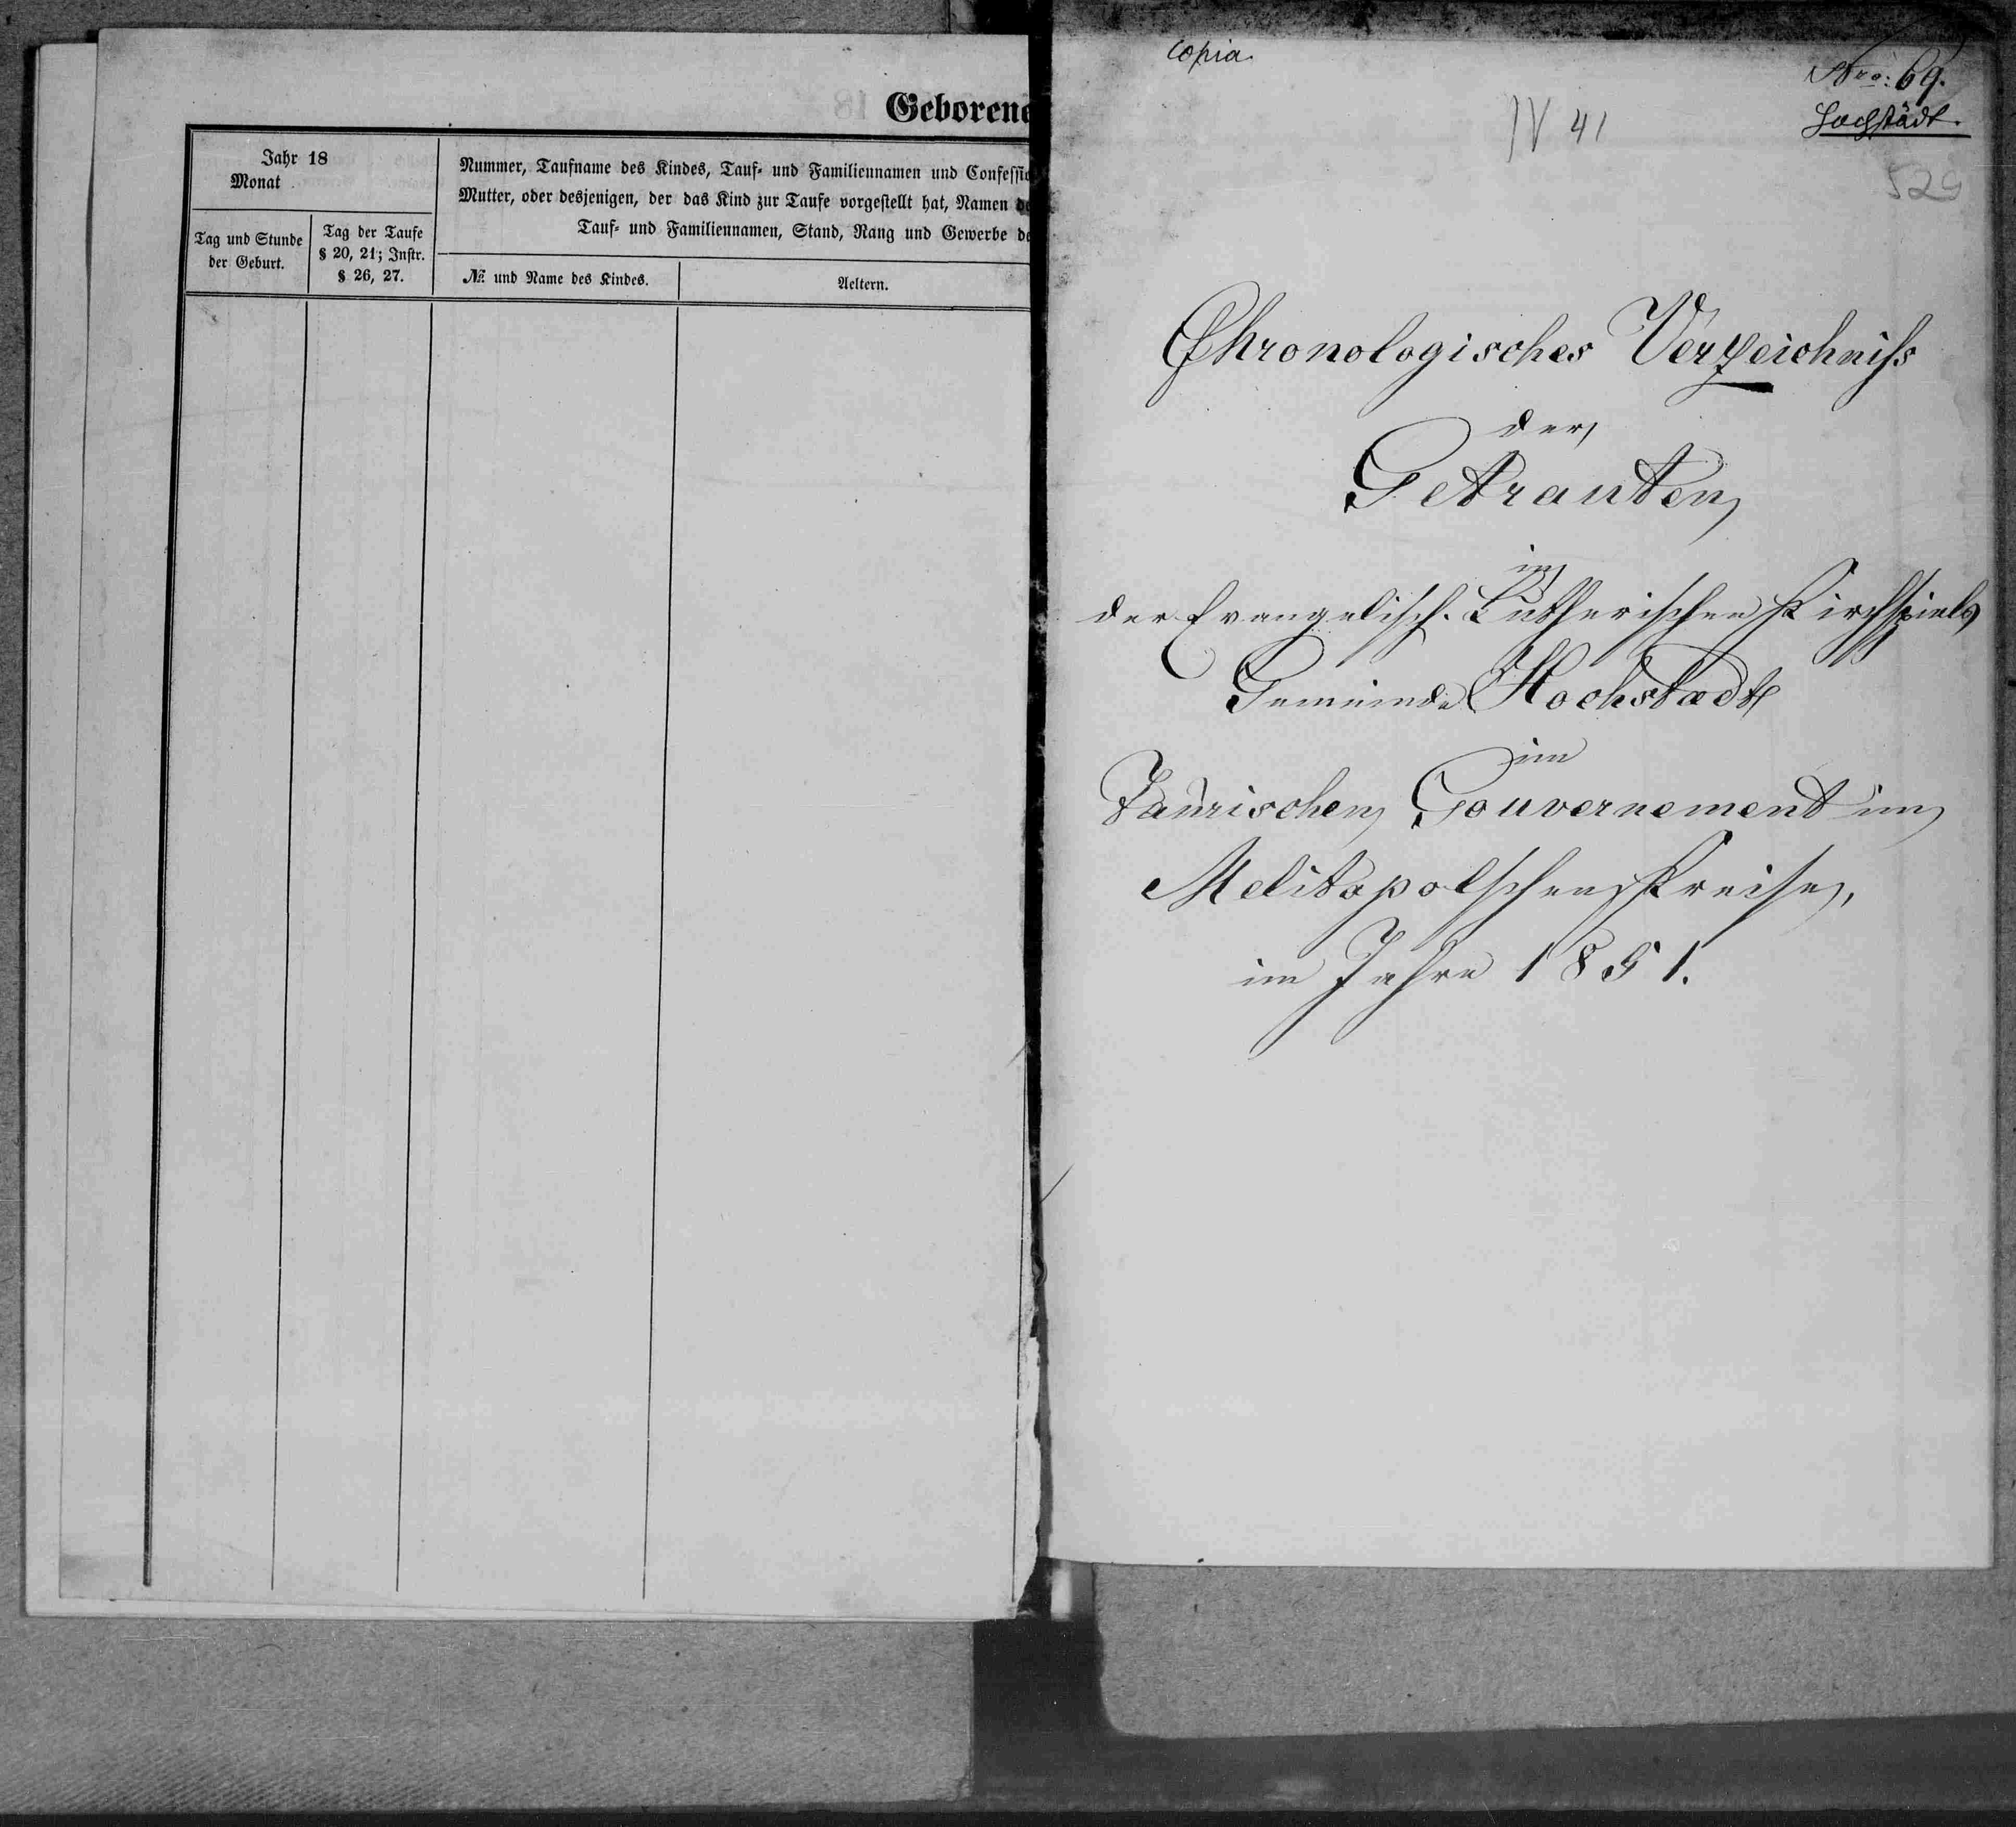 Geborene
Jahr 18
Monat
Nummer, Taufname des Kindes, Tauf- und Familiennamen und Confessio
Mutter, oder desjenigen, der das Kind zur Taufe vorgestellt hat, Namen de
Tauf- und Familiennamen, Stand, Rang und Gewerbe de
Tag und Stunde
der Geburt.
Tag der Taufe
§ 20, 21; Instr.
§ 26, 27.
№ und Name des Kindes.
Aeltern.
copia.
Nro: 69.
Hochstädt.
IV 41
529
Chronologisches Verzeichniss
der
Getrauten
in
der Evangelisch. Lutherischen Kirchspiels
Gemeinde Hochstadt
im
Taurischen Gouvernement im
Melitopolschen Kreise,
im Jahre 1851.